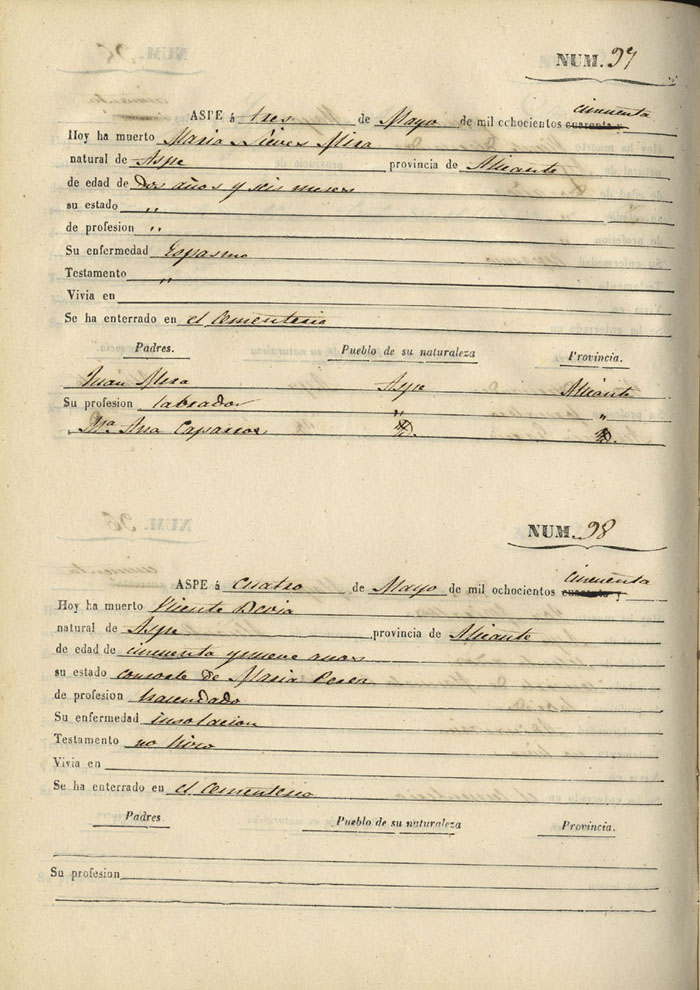 NUM. 97
cincuenta
ASPE á tres de Mayo de mil ochocientos cuarenta y
Hoy ha muerto Maria Nieves Mira
natural de Aspe provincia de Alicante
de edad de dos años y seis meses
su estado "
de profesion "
Su enfermedad Espasmo
Testamento "
Vivia en
Se ha enterrado en el Cementerio
Padres. Pueblo de su naturaleza Provincia.
Juan Mira Aspe Alicante
Su profesion labrador " "
Mª Ana Caparros
NUM. 98
cincuenta
ASPE á cuatro de Mayo de mil ochocientos cuarenta y
Hoy ha muerto Vicente
natural de Aspe provincia de Alicante
de edad de cincuenta y nueve años
su estado consorte de Maria
de profesion hasendado
Su enfermedad insolacion
Testamento no hizo
Vivia en
Se ha enterrado en el Cementerio
Padres. Pueblo de su naturaleza Provincia.
Su profesion